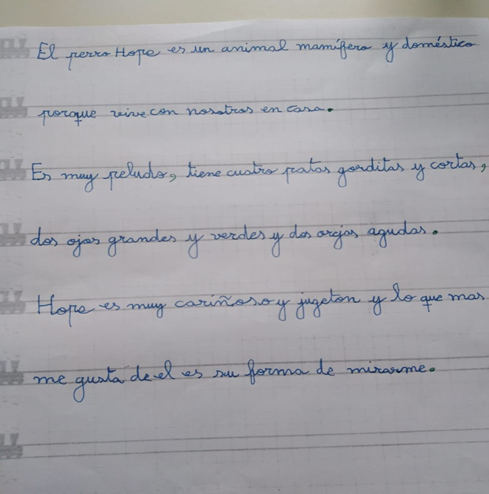 El perro Hope es un animal mamífero y doméstico
porque vive con nosotros en casa.
Es muy peludo, tiene cuatro patas gorditas y cortas,
dos ojos grandes y verdes y dos orejas agudas.
Hope es muy cariñoso y jugeton y lo que mas
me gusta de el es su forma de mirarme.